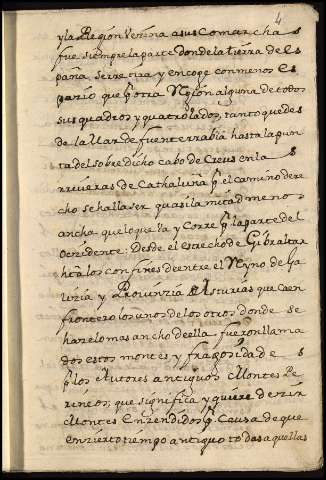 4
y la Region Vezina a sus Comarchas
fue siempre la parte donde la tierra de Es
pana se rretira y encoge con menos Es
pazio que por otra Region alguna de todos
sus quadros y quatro lados, tanto que des
de la Villa de fuenterrabia hasta la pun
ta del sobre dicho cabo de Creus en la s
rriveras de Cathaluña por el camino dere
cho se halla ser quasi la mitad meno s
ancha que lo que la y Corre por la parte del
Occidente. Desde el estrecho de Gibraltar
hta los confines de entre el Reyno de Ga
lizia y Provinzia de Asturias que caen
frontero los unos de los otros donde se
haze lo mas ancho de ella. fueron llama
dos estos montes y fragosidade s
por los Autores antiguos Montes Pe
rineos, que significa y quiere dezir
Montes Enzendidos por Causa de que
en zierto tiempo antiguo todas aquellas